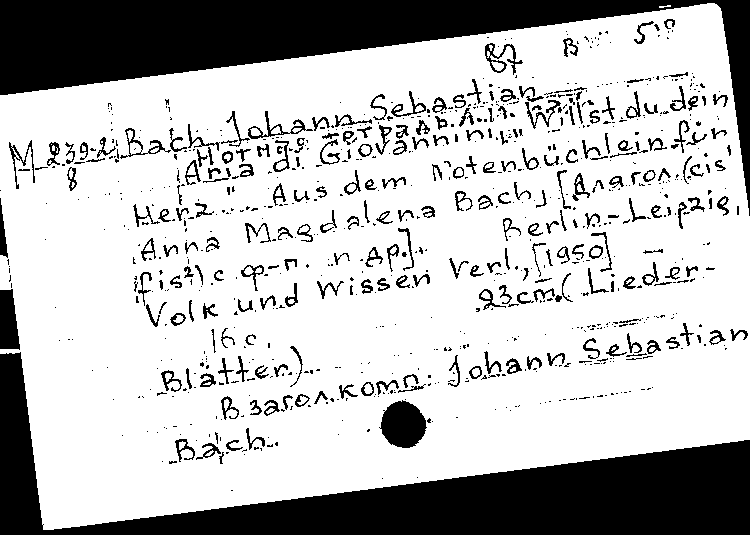 87 В
М 239-21 Bach Johann Sebastian
8
Нотная тетрадь А.М. Бах
Aria di Giovannini „Willst du dein
Herz..." Aus dem Notenbüchlein für
Anna Magdalena Bach, [Для гол. (cis'
fis²) с ф-п. н др.].
Berlin-Leipzig,
Volk und Wissen Verl., [1950]
16 с.
23 cm. (Lieder-
Blätter).
В загол. комп: Johann Sebastian
Bach.